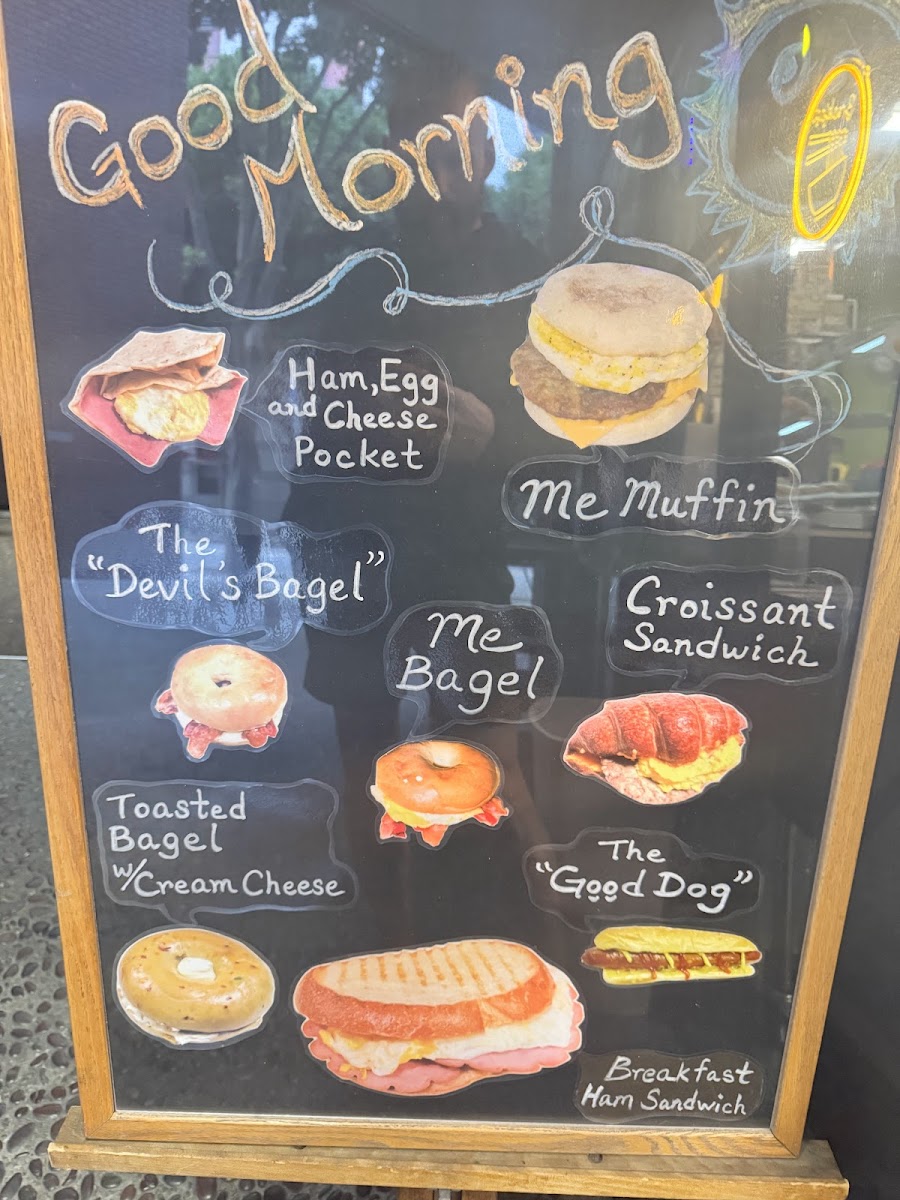 Good
Morning
Ham, Egg
and Cheese
Pocket
Me Muffin
The
"Devil's Bagel"
Me
Bagel
Croissant
Sandwich
Toasted
Bagel
w/Cream Cheese
The
"Good Dog"
Breakfast
Ham Sandwich